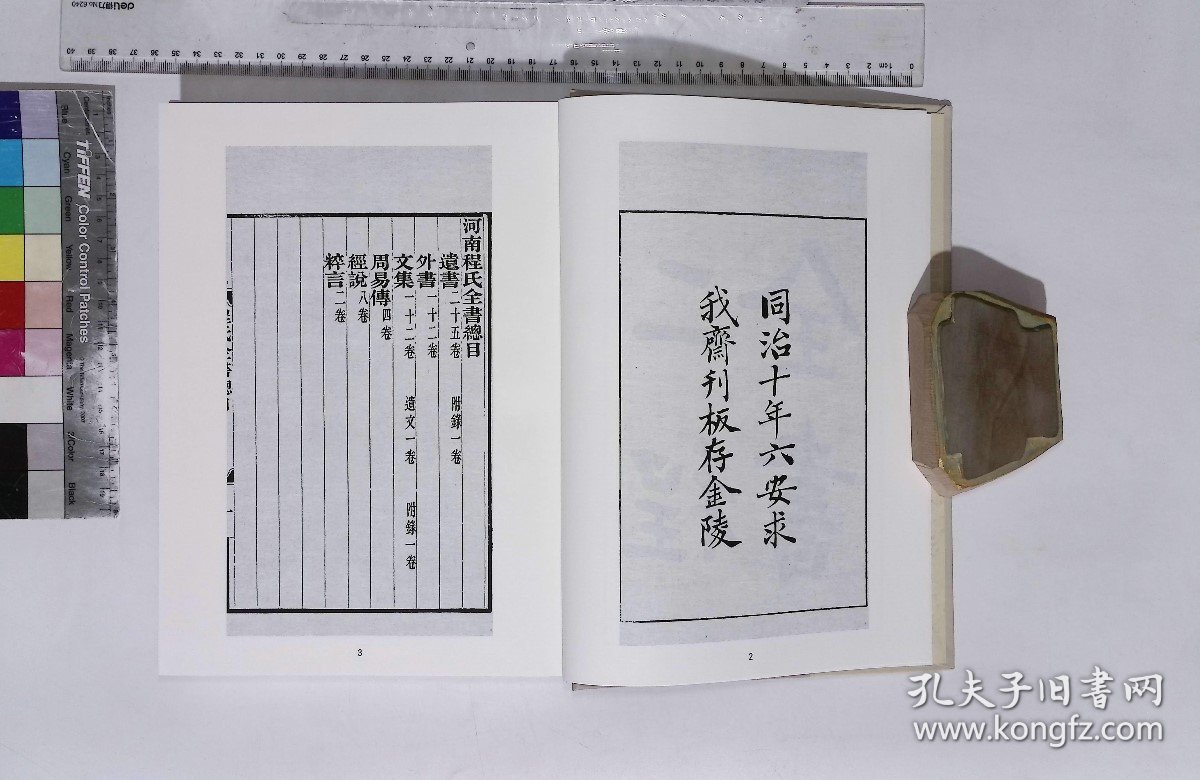 同治十年六安求
我齋刊板存金陵
2
河南程氏全書總目
遺書二十五卷 附錄一卷
外書十二卷
文集十二卷 遺文一卷 附錄一卷
周易傳四卷
經說八卷
粹言二卷
3
TIFFEN Color Control Patches
Blue
Cyan
Green
Yellow
Red
Magenta
White
3/Color
Black
deli 得力 No.6240
40 39 38 37 36 35 34 33 32 31 30 29 28 27 26 25 24 23 22 21 20 19 18 17 16 15 14 13 12 11 10 9 8 7 6 5 4 3 2 1cm 0
孔夫子旧书网
www.kongfz.com